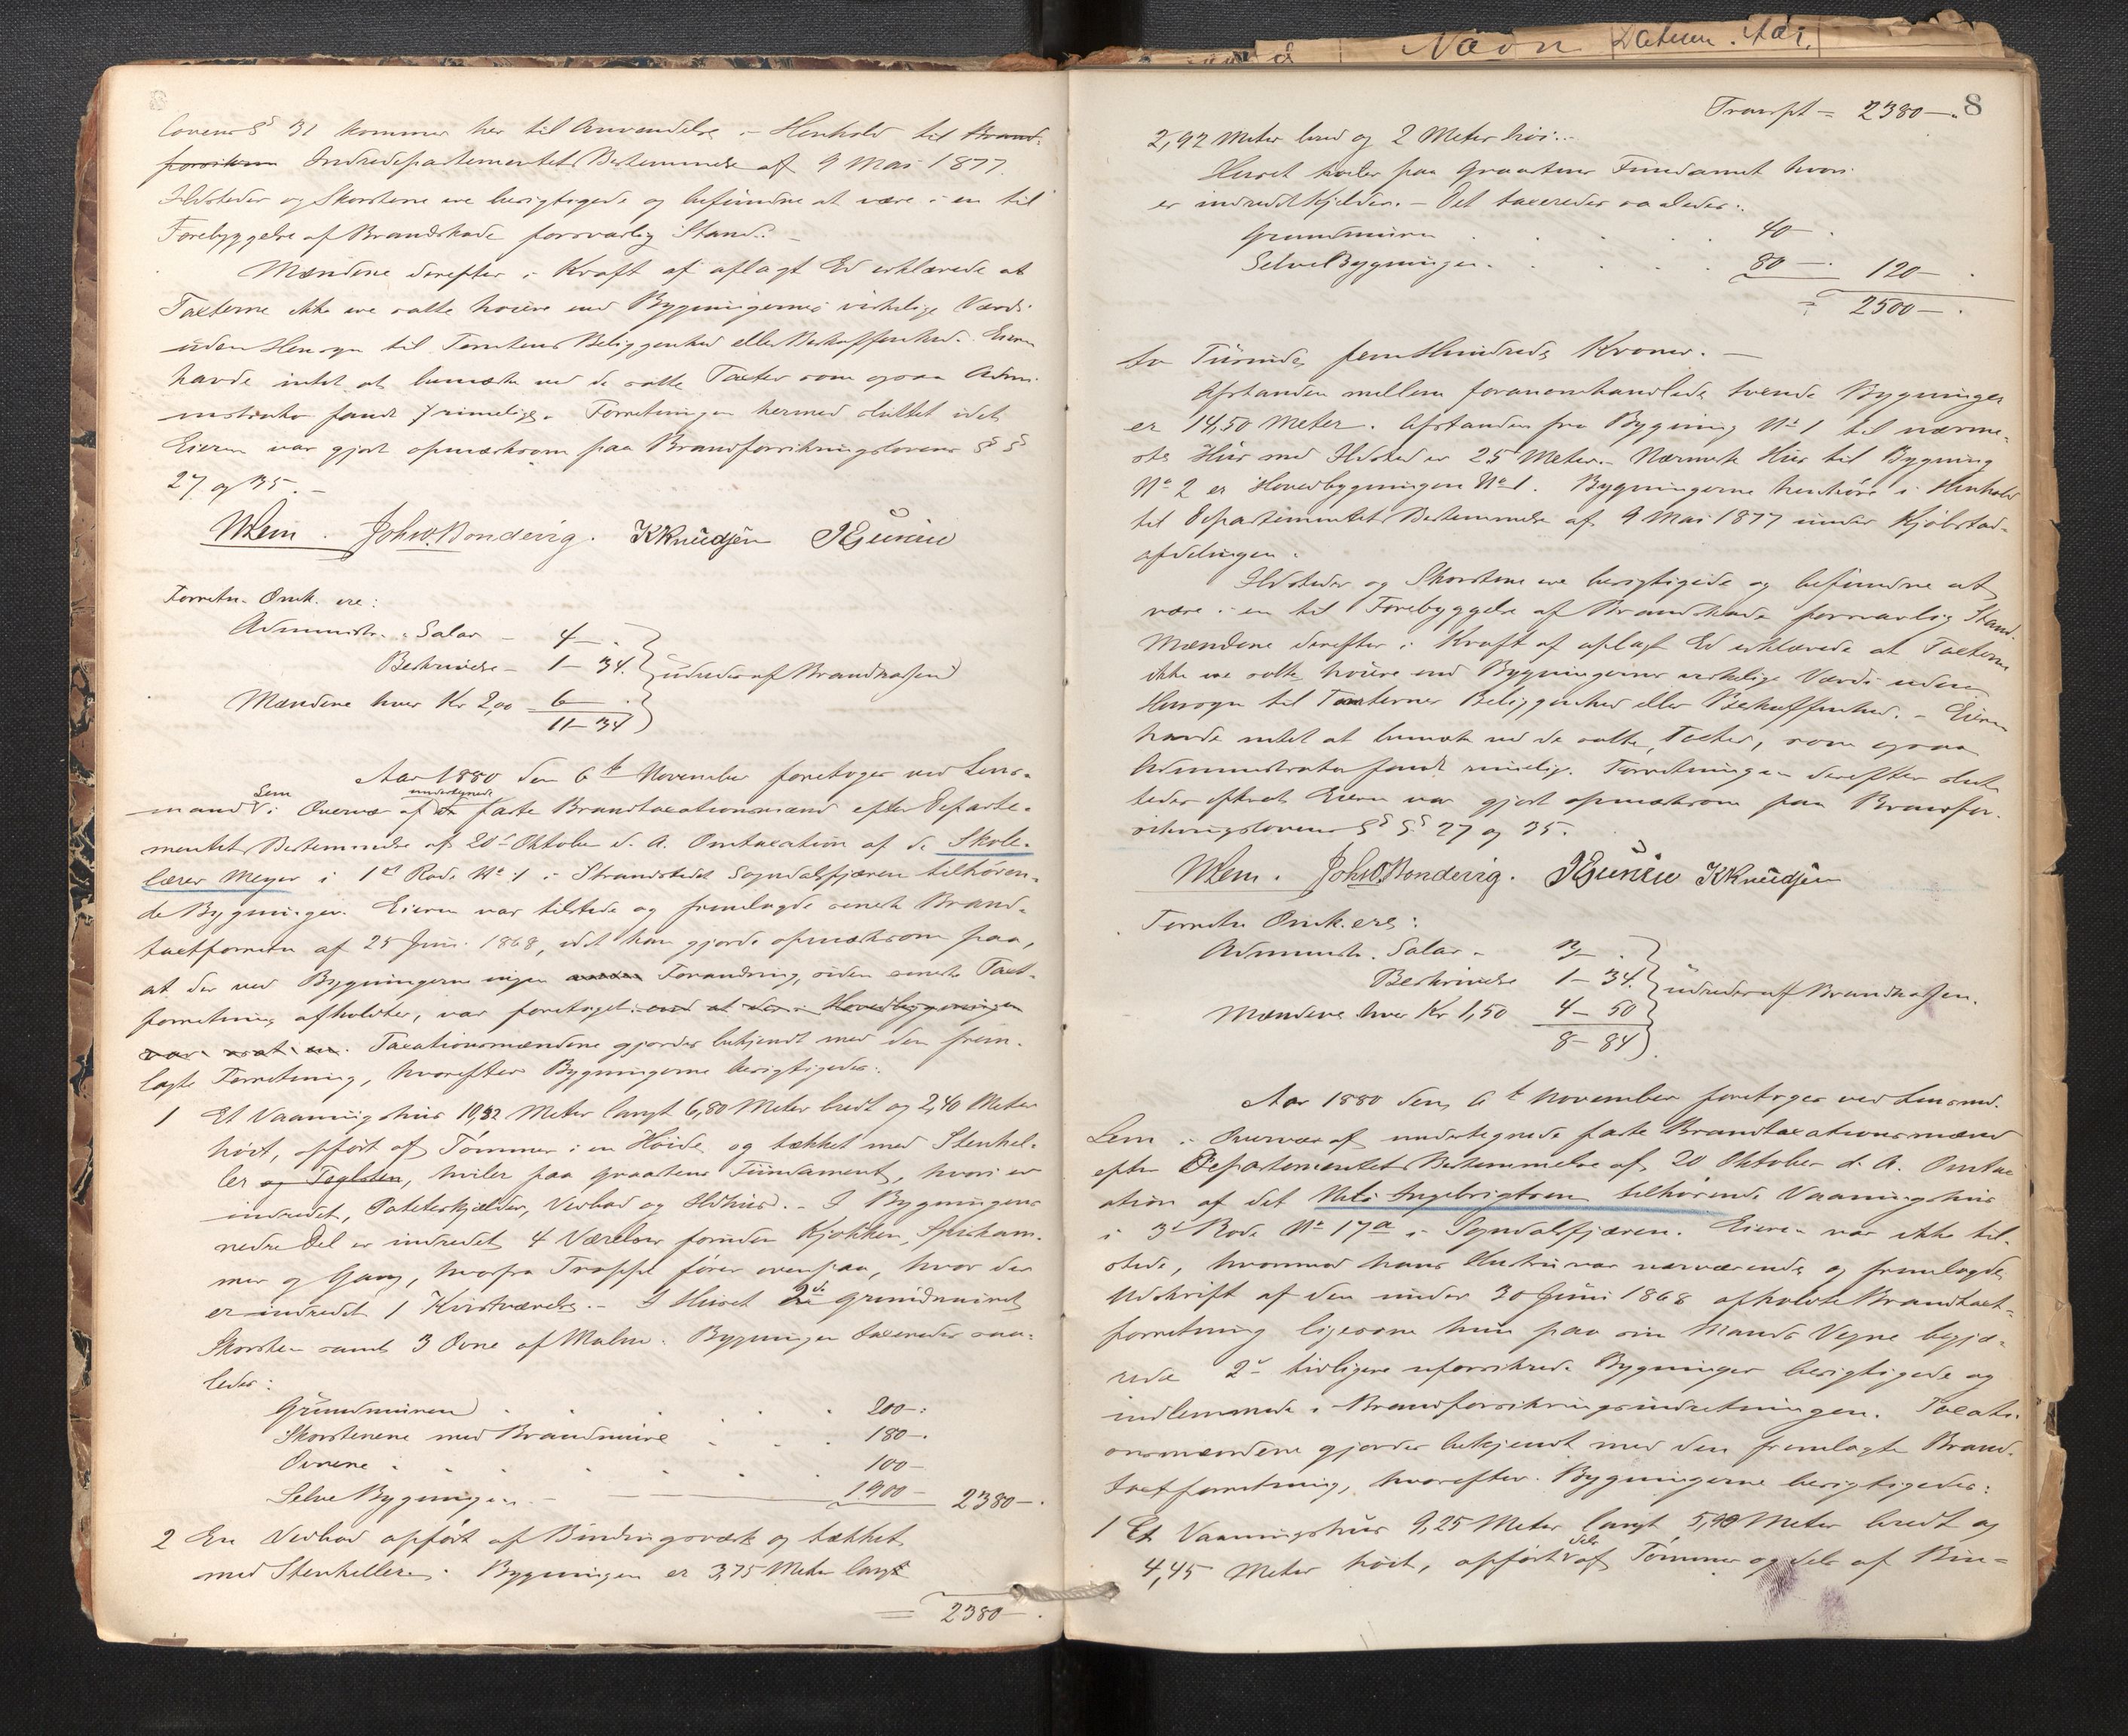 lovens § 31 kommer her til Anvendelse. – Henhold til Brand-
forsikrin Indredepartementets Bestemmelse af 9 Mai 1877.
Ildsteder og Skorstene ere besigtigede og befundne at være i en til
Forebyggelse af Brandskade forsvarlig Stand. –
Mændene derefter i Kraft af aflagt Ed erklærede at
Taxterne ikke ere satte høiere end Bygningernes virkelige Værdi
uden Hensyn til Tomtens Beliggenhed eller Beskaffenhed. Eieren
havde intet at bemærke ved de satte Taxter som ogsaa Admi-
nistrator fandt rimelige. Forretningen hermed sluttet idet
Eieren var gjort opmærksom paa Brandforsikringslovens § §
27 og 35. –
Lem. Johs. O. Bondevig. K Knudsen
Forretn. Omk. ere:
Administr. Salar – 4 – .
Beskrivelse – 1 – 34.
Mændene hver Kr 2,00 6 – .
11 – 34
udredes af Brandkassen
Aar 1880 den 6te November foretoges ved Lens-
mand Lem i Overvær af undertegnede faste Brandtaxationsmænd efter Departe-
mentets Bestemmelse af 20de Oktober d. A. Omtaxation af de Skole-
lærer Meyer i 1ste Rode No 1 i Strandstedet Sogndalsfjæren tilhøren-
de Bygninger. Eieren var tilstede og fremlagde seneste Brand-
taxtforretn af 25 Juni 1868, idet han gjorde opmærksom paa,
at der ved Bygningerne ingen Forandring, siden seneste Taxt-
forretning afholdtes, var foretaget. end at der i Hovedbygningen
var Taxationsmændene gjordes bekjendt med den frem-
lagte Forretning, hvorefter Bygningerne besigtigedes:
1 Et Vaaningshus 10,92 Meter langt 6,80 Meter bredt og 2,40 Meter
høit, opført af Tømmer i en Høide og tækket med Stenhel-
ler og Teglsten, hviler paa Graastens Fundament, hvori er
indredet, Poteteskjælder, Vedbod og Ildhus. – I Bygningens
nedre Del er indredet 4 Værelser foruden Kjøkken, Spiskam-
mer og Gang, hvorfra Trappe fører ovenpaa, hvor der
er indredet 1 Kvistværelse. – I Huset 2de grundmuret
Skorsten samt 3 Ovne af Malm. Bygningen taxeredes saa-
ledes:
Grundmuren . . . . 200 –:
Skorstenene med Brandmure . . . 180 – .
Ovnene . . . . . . 100 –
Selve Bygningen – 1900 – 2380 – .
2 En Vedbod opført af Bindingsværk og tækket
med Stenheller. Bygningen er 3,75 Meter langt
= 2380 – .
8
Transpt = 2380 – .
2,92 Meter bred og 2 Meter høi. –
Huset hviler paa Graastens Fundament hvori
er indredet Kjelder. – Det taxeredes saaledes:
Grundmuren . . . . 40 – .
Selve Bygningen . . . . 80 – . 120 – .
= 2500 – .
to Tusinde, fem Hundrede Kroner. –
Afstanden mellem foranomhandlede tvende Bygninger
er 14,50 Meter. Afstanden fra Bygning No 1 til nærme-
ste Hus med Ildsted er 25 Meter. Nærmeste Hus til Bygning
No 2 er Hovedbygningen No 1. Bygningerne henhøre i Henhold
til Departementets Bestemmelse af 9 Mai 1877 under Kjøbstad-
afdelingen.
Ildsteder og Skorstene ere besigtigede og befundne at
være i en til Forebyggelse af Brandskade forsvarlig Stand.
Mændene derefter i Kraft af aflagt Ed erklærede at Taxterne
ikke ere satte høiere end Bygningernes virkelige Værdi uden
Hensyn til Tomternes Beliggenhed eller Beskaffenhed. – Eieren
havde intet at bemærke ved de satte Taxter, som ogsaa
Administrator fandt rimelig. Forretningen derefter slut-
tedes efterat Eieren var gjort opmærksom paa Brandfor-
sikringslovens § § 27 og 35.
Lem. Johs. O. Bondevig. K Knudsen
Forretn Omk. ere:
Administr. Salar –
Beskrivelse 1 – 34.
Mændene hver Kr 1,50 4 – 50
8 – 84
udredes af Brandkassen.
Aar 1880 den 6te November foretoges ved Lensmd.
Lem i Overvær af undertegnede faste Brandtaxationsmænd
efter Departementets Bestemmelse af 20 Oktober d. A. Omtax-
ation af det Nils Ingebrigtsen tilhørende Vaaningshus
i 3de Rode No 17a i Sogndalsfjæren. Eieren var ikke til-
stede, hvorimod hans Hustru var nærværende og fremlagde
Udskrift af den under 30 Juni 1868 afholdte Brandtaxt-
forretning ligesom hun paa sin Mands Vegne begjæ-
rede 2de tidligere uforsikrede Bygninger besigtigede og
indlemmede i Brandforsikringsindretningen. Taxati-
onsmændene gjordes bekjendt med den fremlagte Brand-
taxtforretning, hvorefter Bygningerne besigtigedes:
1 Et Vaaningshus 9,25 Meter langt 5,90 Meter bredt og
4,45 Meter høit, opført dels af Tømmer og dels af Bin-
Navn Datum. Aar.